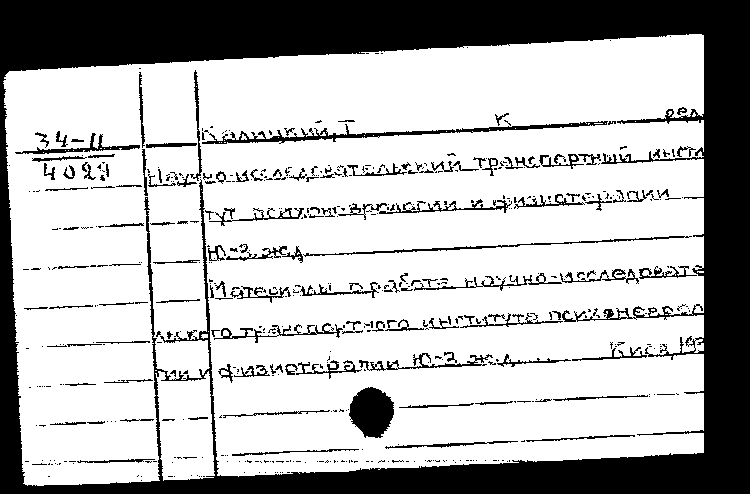 34-II
4029
Калицкий, Т К ред
Научно-исследовательский транспортный инсти
тут психоневрологии и физиотерапии
Ю-З. ж.д.
Материалы о работе научно-исследовате
льского транспортного института психоневрол
гии и физиотерапии Ю-З ж.д. .... Киев, 193